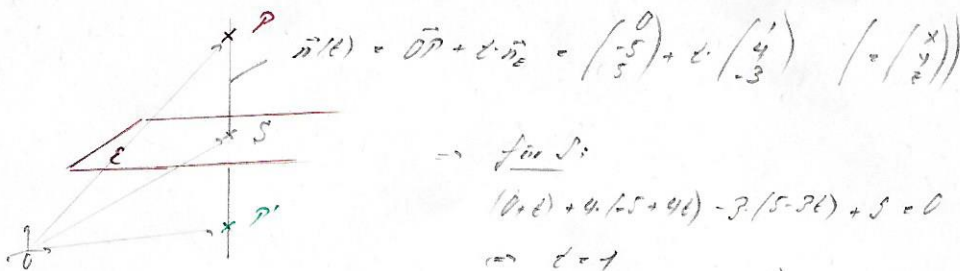 P
n⃗(t) = 0⃗P + t·n⃗_E = (0 -5 5) + t·(1 4 -3) (= (x y z))
S
E
=> für S:
(0+t) + 4·(-5+4t) - 3·(5-3t) + 9 = 0
P'
0
=> t = 1